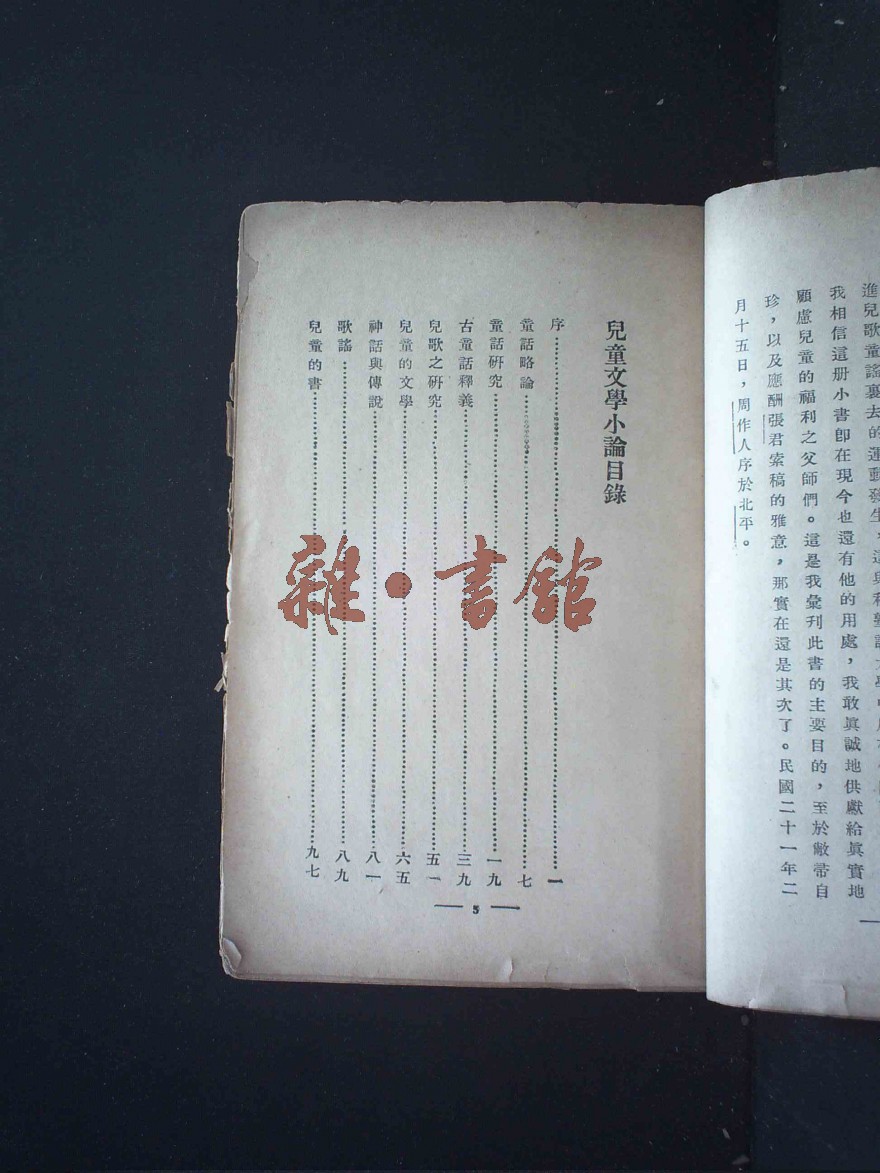 進兒歌童謠裏去的運動發生，這與
我相信這册小書卽在現今也還有他的用處，我敢眞誠地供獻給眞實地
顧慮兒童的福利之父師們。這是我彙刊此書的主要目的，至於敝帚自
珍，以及應酬張君索稿的雅意，那實在還是其次了。民國二十一年二
月十五日，周作人序於北平。
兒童文學小論目錄
序⋯⋯一
童話略論⋯⋯七
童話硏究⋯⋯一九
古童話釋義⋯⋯三九
兒歌之硏究⋯⋯五一
兒童的文學⋯⋯六五
神話與傳說⋯⋯八一
歌謠⋯⋯八九
兒童的書⋯⋯九七
5
雜·書館